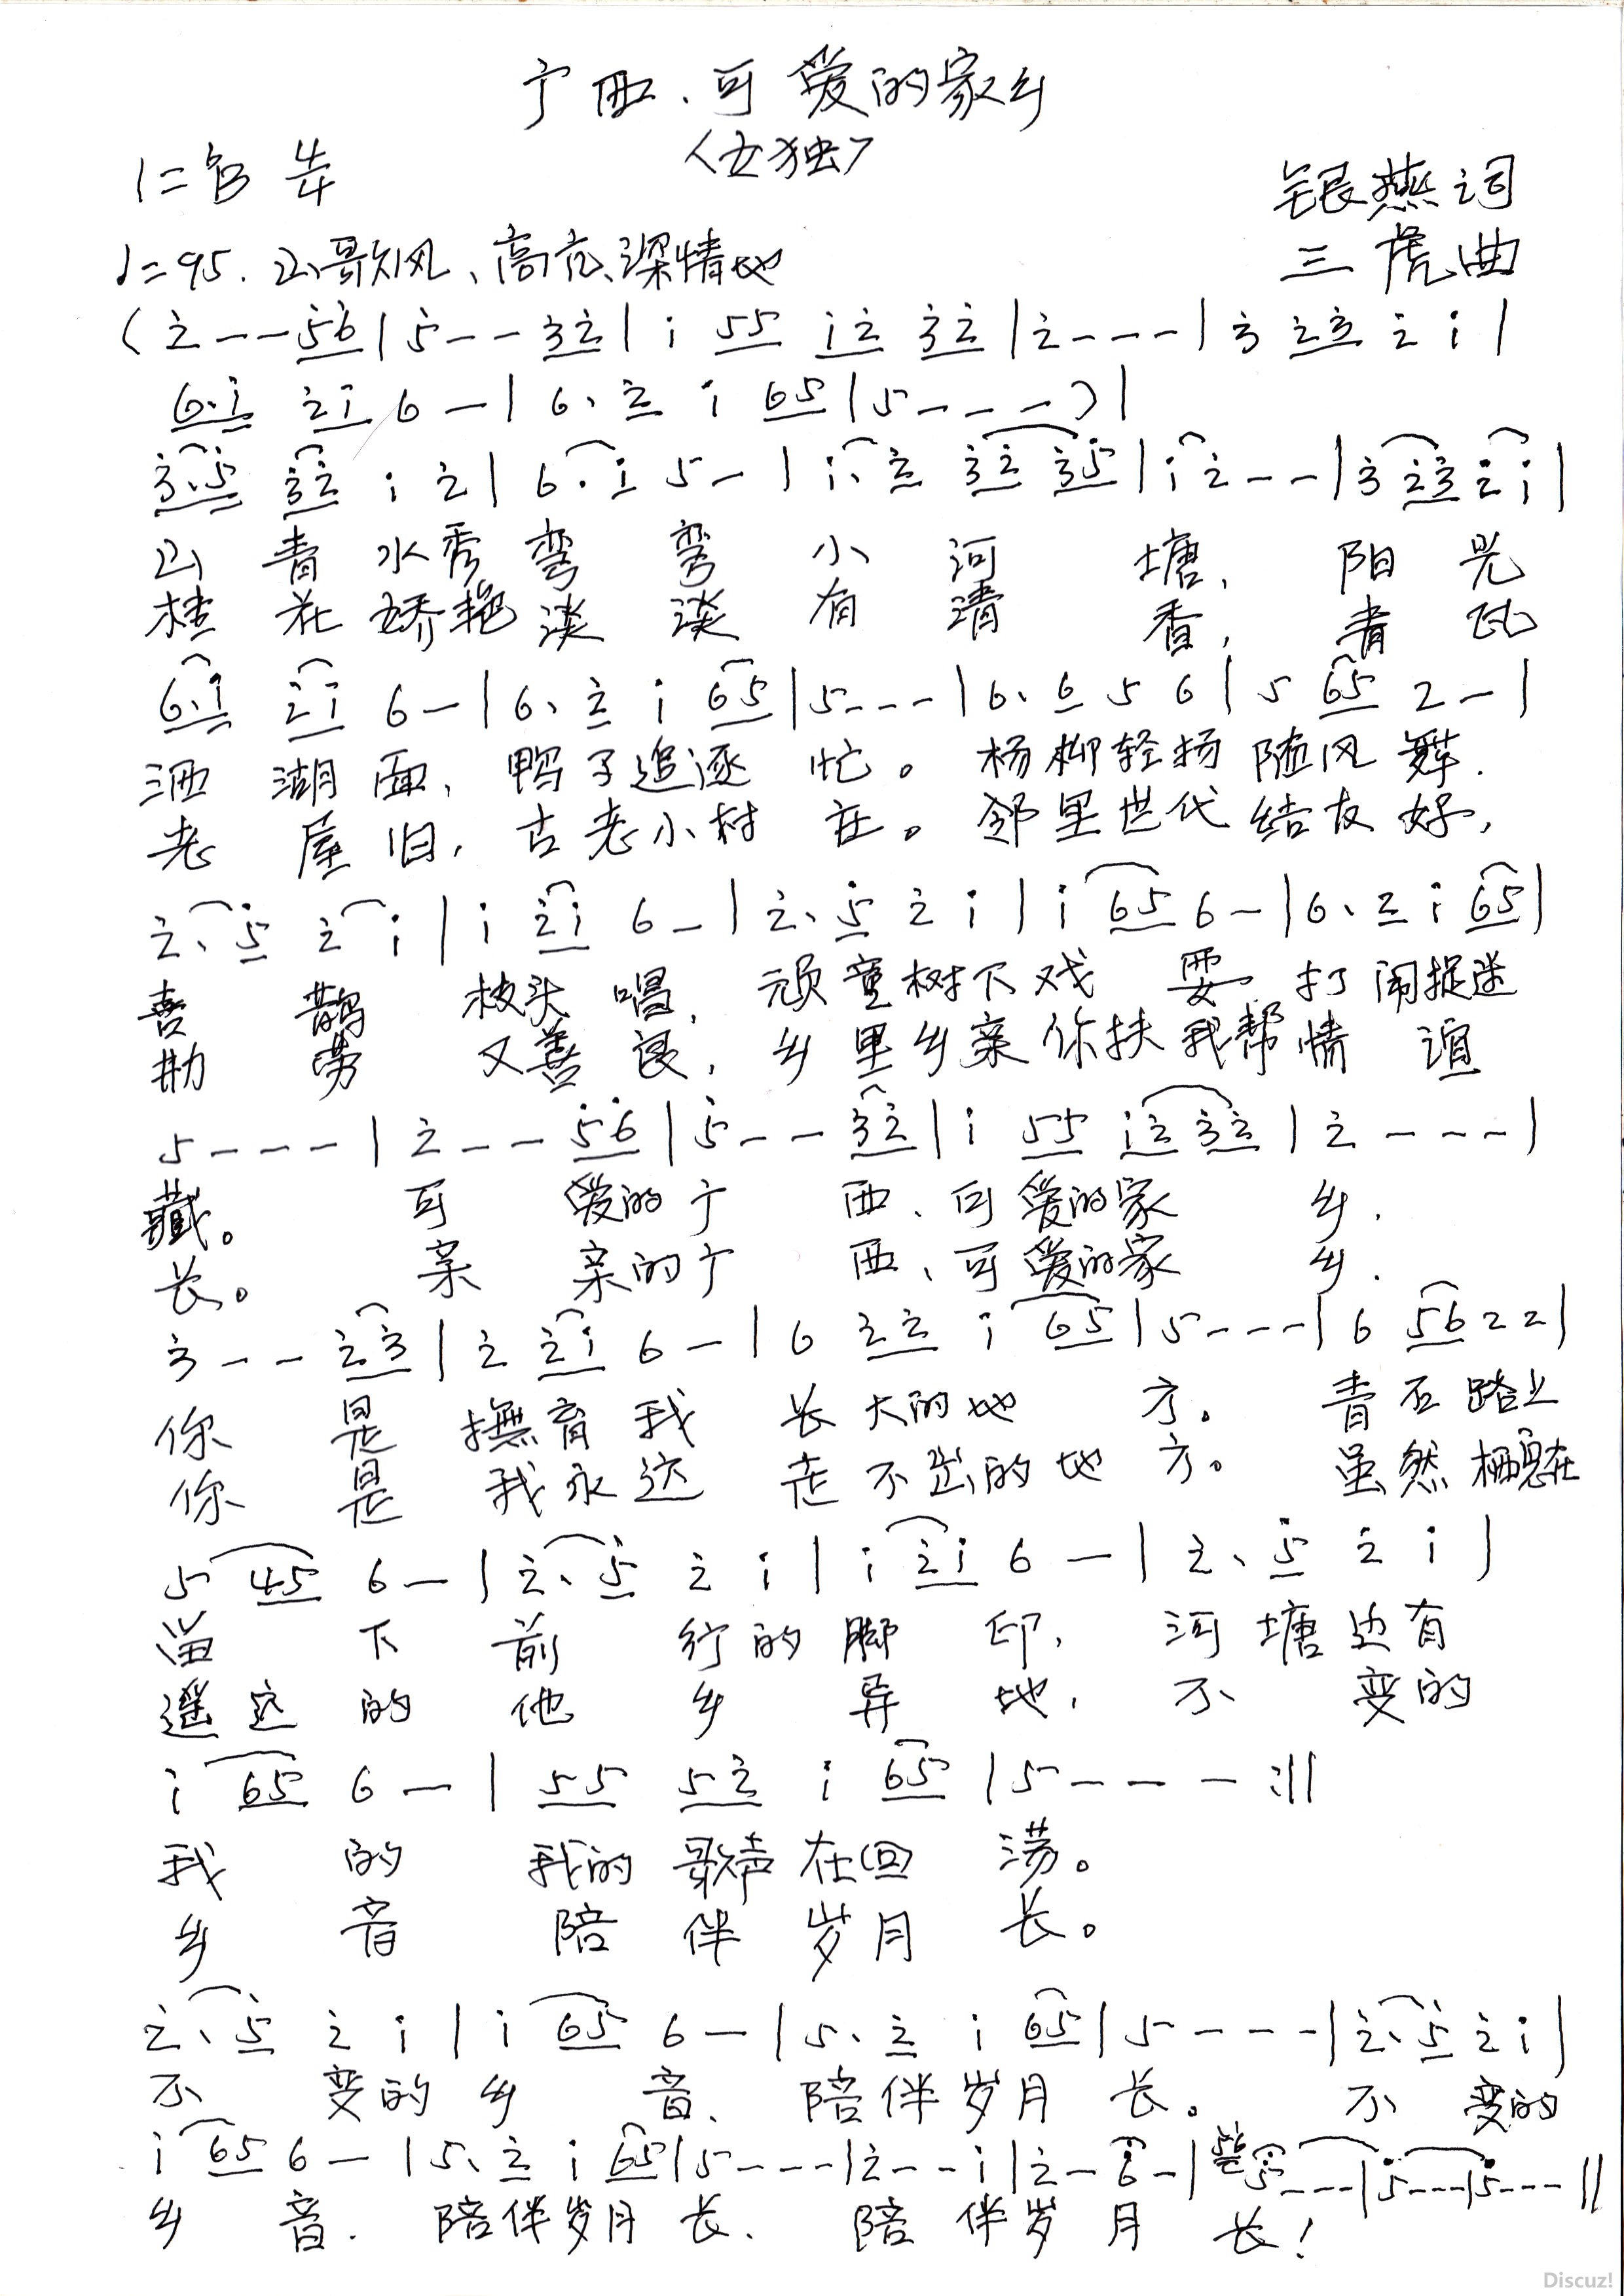 宁西、可爱的家乡
<女独>
1=ᵇB 4/4
银燕词
♩=95. 山歌风、高亢、深情地
三虎曲
( 2̇ - - 5̇6̇ | 5̇ - - 3̇2̇ | 1̇ 55 1̇2̇ 3̇2̇ | 2̇ - - - | 3̇ 2̇3̇ 2̇ 1̇ |
6·1̇ 2̇1̇ 6 - | 6· 2̇ 1̇ 65 | 5 - - - ) |
3̇·5̇ 3̇2̇ 1̇ 2̇ | 6·1̇ 5 - | 1̇· 2̇ 3̇2̇ 3̇5̇ | 1̇ 2̇ - - | 3̇ 2̇3̇ 2̇ 1̇ |
山青水秀弯弯小河塘, 阳光
桂花娇艳淡淡有清香, 青瓦
6·1̇ 2̇1̇ 6 - | 6· 2̇ 1̇ 65 | 5 - - - | 6· 6 5 6 | 5 65 2 - |
洒湖面, 鸭子追逐忙。杨柳轻扬随风舞.
老屋旧, 古老小村庄。邻里世代结友好,
2̇· 5̇ 2̇ 1̇ | 1̇ 2̇1̇ 6 - | 2̇· 5̇ 2̇ 1̇ | 1̇ 65 6 - | 6· 2̇ 1̇ 65 |
喜鹊枝头唱, 顽童树下戏耍打闹捉迷
勤劳又善良, 乡里乡亲你扶我帮情谊
5 - - - | 2̇ - - 5̇6̇ | 5̇ - - 3̇2̇ | 1̇ 55 1̇2̇ 3̇2̇ | 2̇ - - - |
藏。可爱的宁西、可爱的家乡.
长。亲亲的宁西、可爱的家乡.
3̇ - - 2̇3̇ | 2̇ 2̇1̇ 6 - | 6 2̇2̇ 1̇ 65 | 5 - - - | 6 56 2 2 |
你是撫育我长大的地方。青石路上
你是我永远走不出的地方。虽然栖息在
5 45 6 - | 2̇· 5̇ 2̇ 1̇ | 1̇ 2̇1̇ 6 - | 2̇· 5̇ 2̇ 1̇ |
留下前行的脚印, 河塘边有
遥远的他乡异地, 不变的
1̇ 65 6 - | 55 52̇ 1̇ 65 | 5 - - - :||
我的我的歌声在回荡。
乡音陪伴岁月长。
2̇· 5̇ 2̇ 1̇ | 1̇ 65 6 - | 5· 2̇ 1̇ 65 | 5 - - - | 2̇· 5̇ 2̇ 1̇ |
不变的乡音、陪伴岁月长。不变的
1̇ 65 6 - | 5· 2̇ 1̇ 65 | 5 - - - | 2̇ - - 1̇ | 2̇ - 6̇ - | 5̇ - - - | 5̇ - - - | 5̇ - - - ||
乡音. 陪伴岁月长、陪伴岁月长!
Discuz!